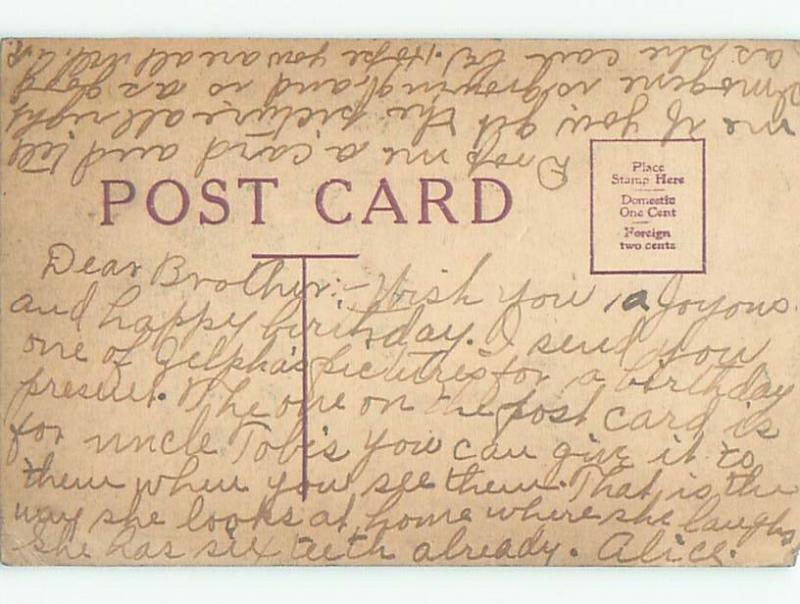 POST CARD
Place
Stamp Here
Domestic
One Cent
Foreign
two cents
Dear Brother:- Wish you a Joyous
and happy birthday. I send you
one of Zelpha's pictures for a birthday
present. The one on the post card is
for uncle Tobis you can give it to
them when you see them. That is the
way she looks at home where she laughs
She has six teeth already. Alice.
Drop me a card and tell
me if you get the picture all right
Imogene is growing and is as good
as she can be. Hope you are all well.